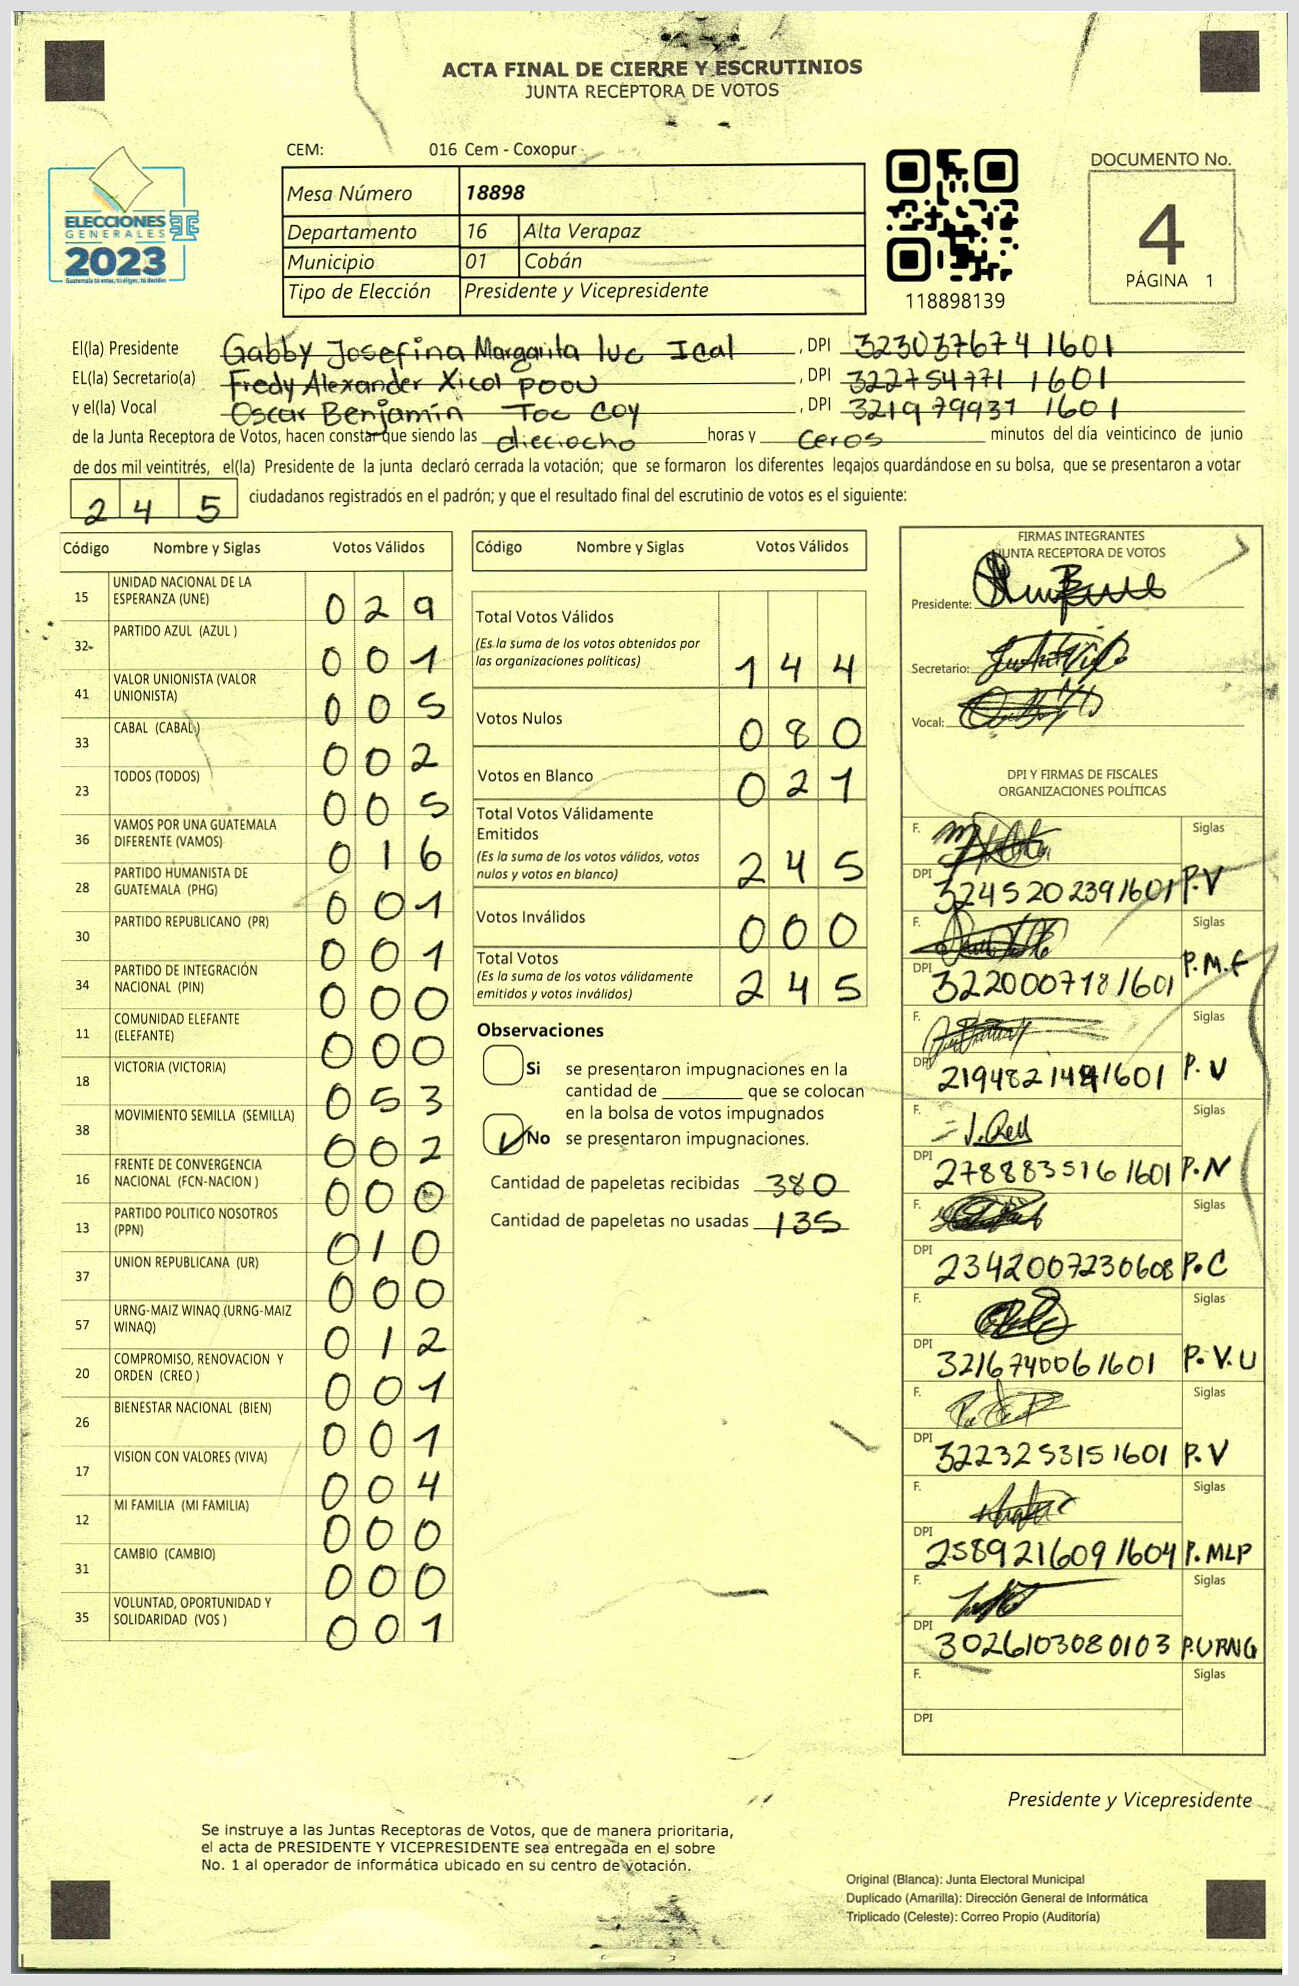 ACTA FINAL DE CIERRE Y ESCRUTINIOS
JUNTA RECEPTORA DE VOTOS
CEM: 016 Cem - Coxopur
Mesa Número 18898
Departamento 16 Alta Verapaz
Municipio 01 Cobán
Tipo de Elección Presidente y Vicepresidente
ELECCIONES
GENERALES
2023
118898139
DOCUMENTO No.
4
PÁGINA 1
El(la) Presidente Gabby Josefina Margarita Iuc Ical, DPI 323037674 1601
EL(la) Secretario(a) Fredy Alexander Xicol Poou, DPI 322754771 1601
y el(la) Vocal Oscar Benjamín Toc Coy, DPI 321979937 1601
de la Junta Receptora de Votos, hacen constar que siendo las dieciocho horas y ceros minutos del día veinticinco de junio
de dos mil veintitrés, el(la) Presidente de la junta declaró cerrada la votación; que se formaron los diferentes legajos guardándose en su bolsa, que se presentaron a votar
245 ciudadanos registrados en el padrón; y que el resultado final del escrutinio de votos es el siguiente:
Código Nombre y Siglas Votos Válidos
15 UNIDAD NACIONAL DE LA ESPERANZA (UNE) 029
32 PARTIDO AZUL (AZUL ) 001
41 VALOR UNIONISTA (VALOR UNIONISTA) 005
33 CABAL (CABAL) 002
23 TODOS (TODOS) 005
36 VAMOS POR UNA GUATEMALA DIFERENTE (VAMOS) 016
28 PARTIDO HUMANISTA DE GUATEMALA (PHG) 001
30 PARTIDO REPUBLICANO (PR) 001
34 PARTIDO DE INTEGRACIÓN NACIONAL (PIN) 000
11 COMUNIDAD ELEFANTE (ELEFANTE) 000
18 VICTORIA (VICTORIA) 053
38 MOVIMIENTO SEMILLA (SEMILLA) 002
16 FRENTE DE CONVERGENCIA NACIONAL (FCN-NACION ) 000
13 PARTIDO POLITICO NOSOTROS (PPN) 010
37 UNION REPUBLICANA (UR) 000
57 URNG-MAIZ WINAQ (URNG-MAIZ WINAQ) 012
20 COMPROMISO, RENOVACION Y ORDEN (CREO ) 001
26 BIENESTAR NACIONAL (BIEN) 001
17 VISION CON VALORES (VIVA) 004
12 MI FAMILIA (MI FAMILIA) 000
31 CAMBIO (CAMBIO) 000
35 VOLUNTAD, OPORTUNIDAD Y SOLIDARIDAD (VOS ) 001
Código Nombre y Siglas Votos Válidos
Total Votos Válidos
(Es la suma de los votos obtenidos por
las organizaciones políticas) 144
Votos Nulos 080
Votos en Blanco 021
Total Votos Válidamente
Emitidos
(Es la suma de los votos válidos, votos
nulos y votos en blanco) 245
Votos Inválidos 000
Total Votos
(Es la suma de los votos válidamente
emitidos y votos inválidos) 245
Observaciones
Si se presentaron impugnaciones en la
cantidad de ________ que se colocan
en la bolsa de votos impugnados
No se presentaron impugnaciones.
Cantidad de papeletas recibidas 380
Cantidad de papeletas no usadas 135
FIRMAS INTEGRANTES
JUNTA RECEPTORA DE VOTOS
Presidente:
Secretario:
Vocal:
DPI Y FIRMAS DE FISCALES
ORGANIZACIONES POLÍTICAS
F. Siglas
DPI 3245202391601 P.V
F. Siglas
DPI 3220007181601 P.M.F
F. Siglas
DPI 2194821481601 P.V
F. Siglas
DPI 2788835161601 P.N
F. Siglas
DPI 2342007230608 P.C
F. Siglas
DPI 3216740061601 P.V.U
F. Siglas
DPI 3223253151601 P.V
F. Siglas
DPI 2589216091604 P.MLP
F. Siglas
DPI 3026103080103 P.URNG
F. Siglas
DPI
Presidente y Vicepresidente
Se instruye a las Juntas Receptoras de Votos, que de manera prioritaria,
el acta de PRESIDENTE Y VICEPRESIDENTE sea entregada en el sobre
No. 1 al operador de informática ubicado en su centro de votación.
Original (Blanca): Junta Electoral Municipal
Duplicado (Amarilla): Dirección General de Informática
Triplicado (Celeste): Correo Propio (Auditoría)